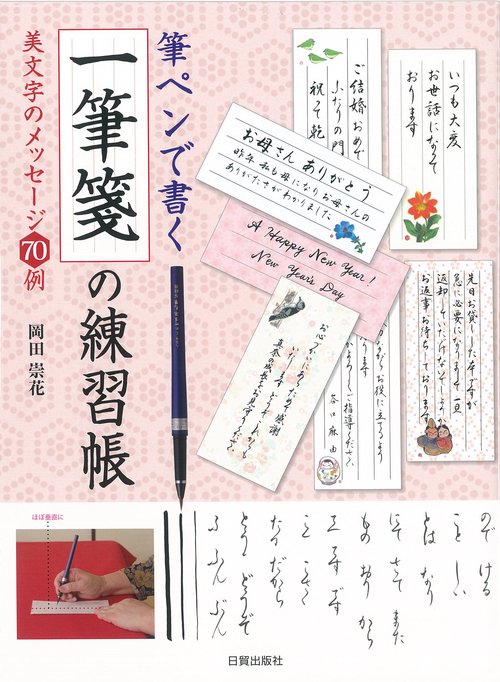 筆ペンで書く
一筆箋
の練習帳
美文字のメッセージ70例
岡田崇花
ご結婚おめで
ふたりの門
祝って乾
いつも大変
お世話になって
おります
お母さん ありがとう
昨年私も母になりお母さんの
ありがたさがわかりました
A Happy New Year!
New Year's Day
先日お貸しした本ですが
急に必要になりまして一旦
返却していただけないでしょうか
お返事お待ちしております
谷口麻由
ほぼ垂直に
ので ける
こと しい
とは なり
にて さて また
もの おり から
です
こと
だから
どうぞ
ふ ふん ぶん
日貿出版社